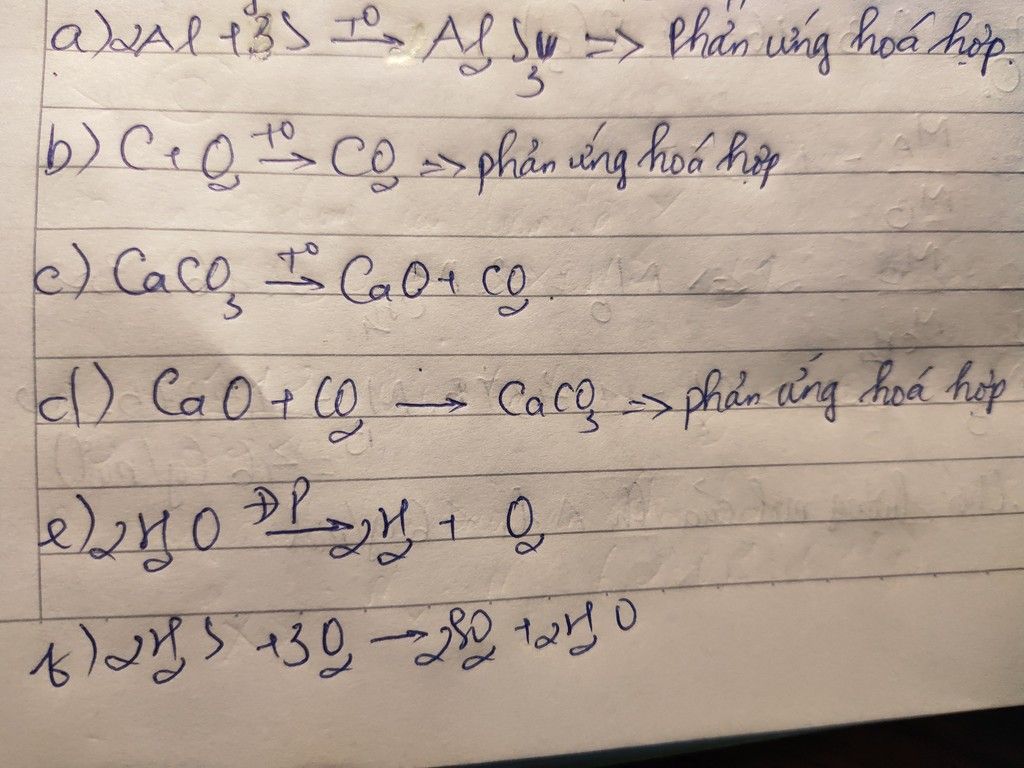 a) 2Al + 3S —t⁰→ Al₂S₃ => Phản ứng hoá hợp.
b) C + O₂ —t⁰→ CO₂ => phản ứng hoá hợp
c) CaCO₃ —t⁰→ CaO + CO₂.
d) CaO + CO₂ → CaCO₃ => phản ứng hoá hợp
e) 2H₂O —ĐP→ 2H₂ + O₂
f) 2H₂S + 3O₂ → 2SO₂ + 2H₂O